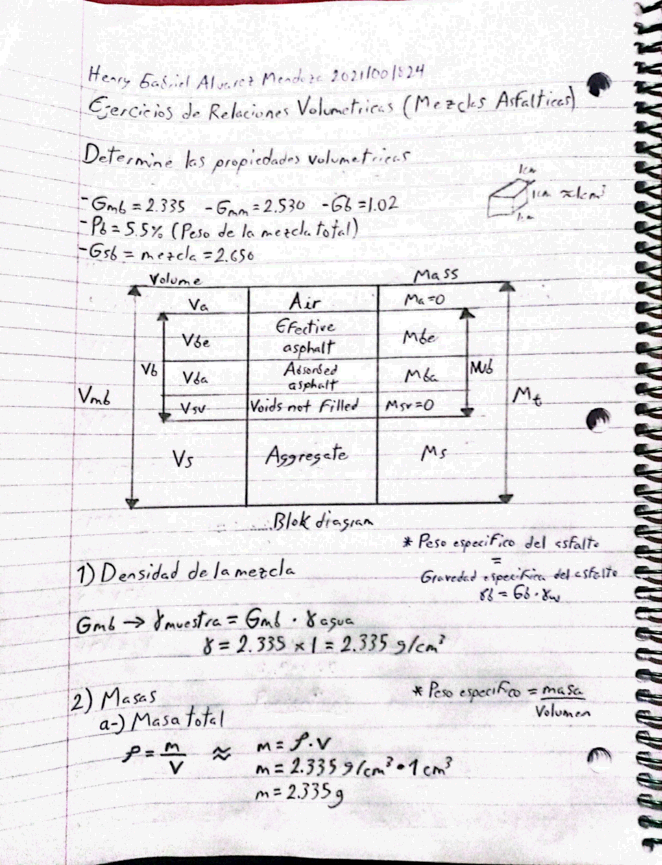 Henry Gabriel Alvarez Mendoza 2021/00/824
Ejercicios de Relaciones Volumetricas (Mezclas Asfalticas)
Determine las propiedades volumetricas
-Gmb = 2.335 -Gmm = 2.530 -Gb = 1.02
-Pb = 5.5% (Peso de la mezcla total)
-Gsb = mezcla = 2.650
1cm
1cm ≈ 1cm³
1cm
Volume Mass
Va Air Ma=0
Vbe Efective asphalt Mbe
Vb Mb
Vba Absorbed asphalt Mba
Vmb Mt
Vsv Voids not Filled Msv=0
Vs Aggregate Ms
Blok diagram
* Peso especifico del asfalto
=
Gravedad especifica del asfalto
γb = Gb · γw
1) Densidad de la mezcla
Gmb → γmuestra = Gmb · γagua
γ = 2.335 × 1 = 2.335 g/cm³
2) Masas
* Peso especifico = masa
Volumen
a-) Masa total
ρ = m/V ≈ m = ρ·V
m = 2.335 g/cm³ • 1 cm³
m = 2.335g